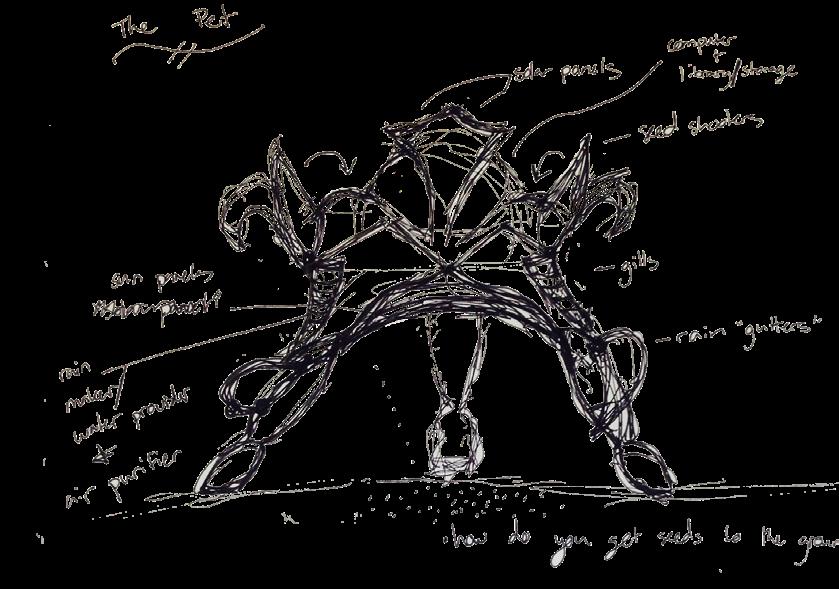 The Pest
solar panels
computer
+
library/storage
seed shooters
gills
sun panels
rain "gutters"
rain
maker/
water provider
+
air purifier
how do you get seeds to the